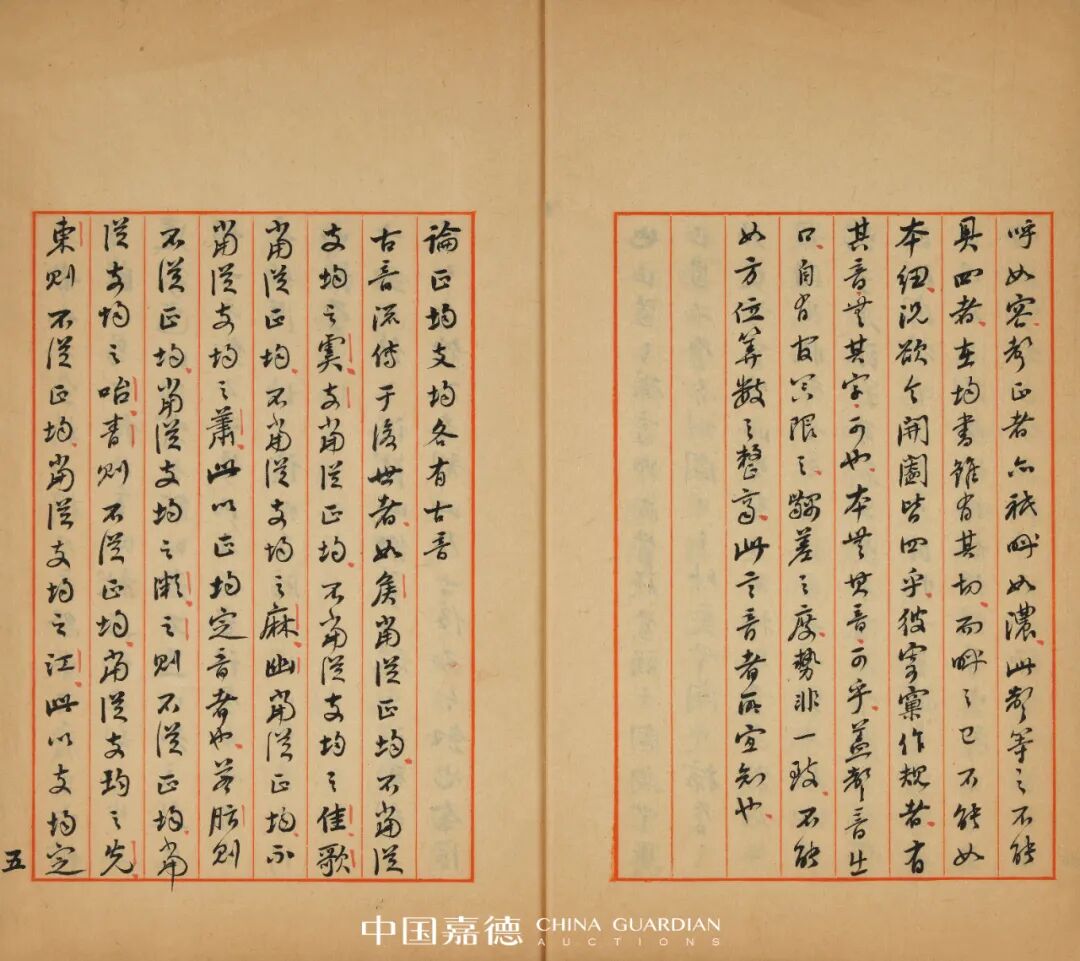 呼如窓聲正者亦祇呼如濃此聲等之不能
具四者在均書雖有其切而呼之已不能如
本紐況欲令開闔皆四乎彼穿窠作規者有
其音無其字可也本無其音可乎蓋聲音出
口自有官器限之齟差之度勢非一致不能
如方位算數之整齊此言音者所宜知也
論正均支均各有古音
古音流傳于後世者如矦當從正均不當從
支均之虞支當從正均不當從支均之佳歌
當從正均不當從支均之麻幽當從正均不
當從支均之蕭此以正均定音者也若脂則
不從正均當從支均之微之則不從正均當
從支均之咍青則不從正均當從支均之先
東則不從正均當從支均之江此以支均定
五
中国嘉德 CHINA GUARDIAN
AUCTIONS